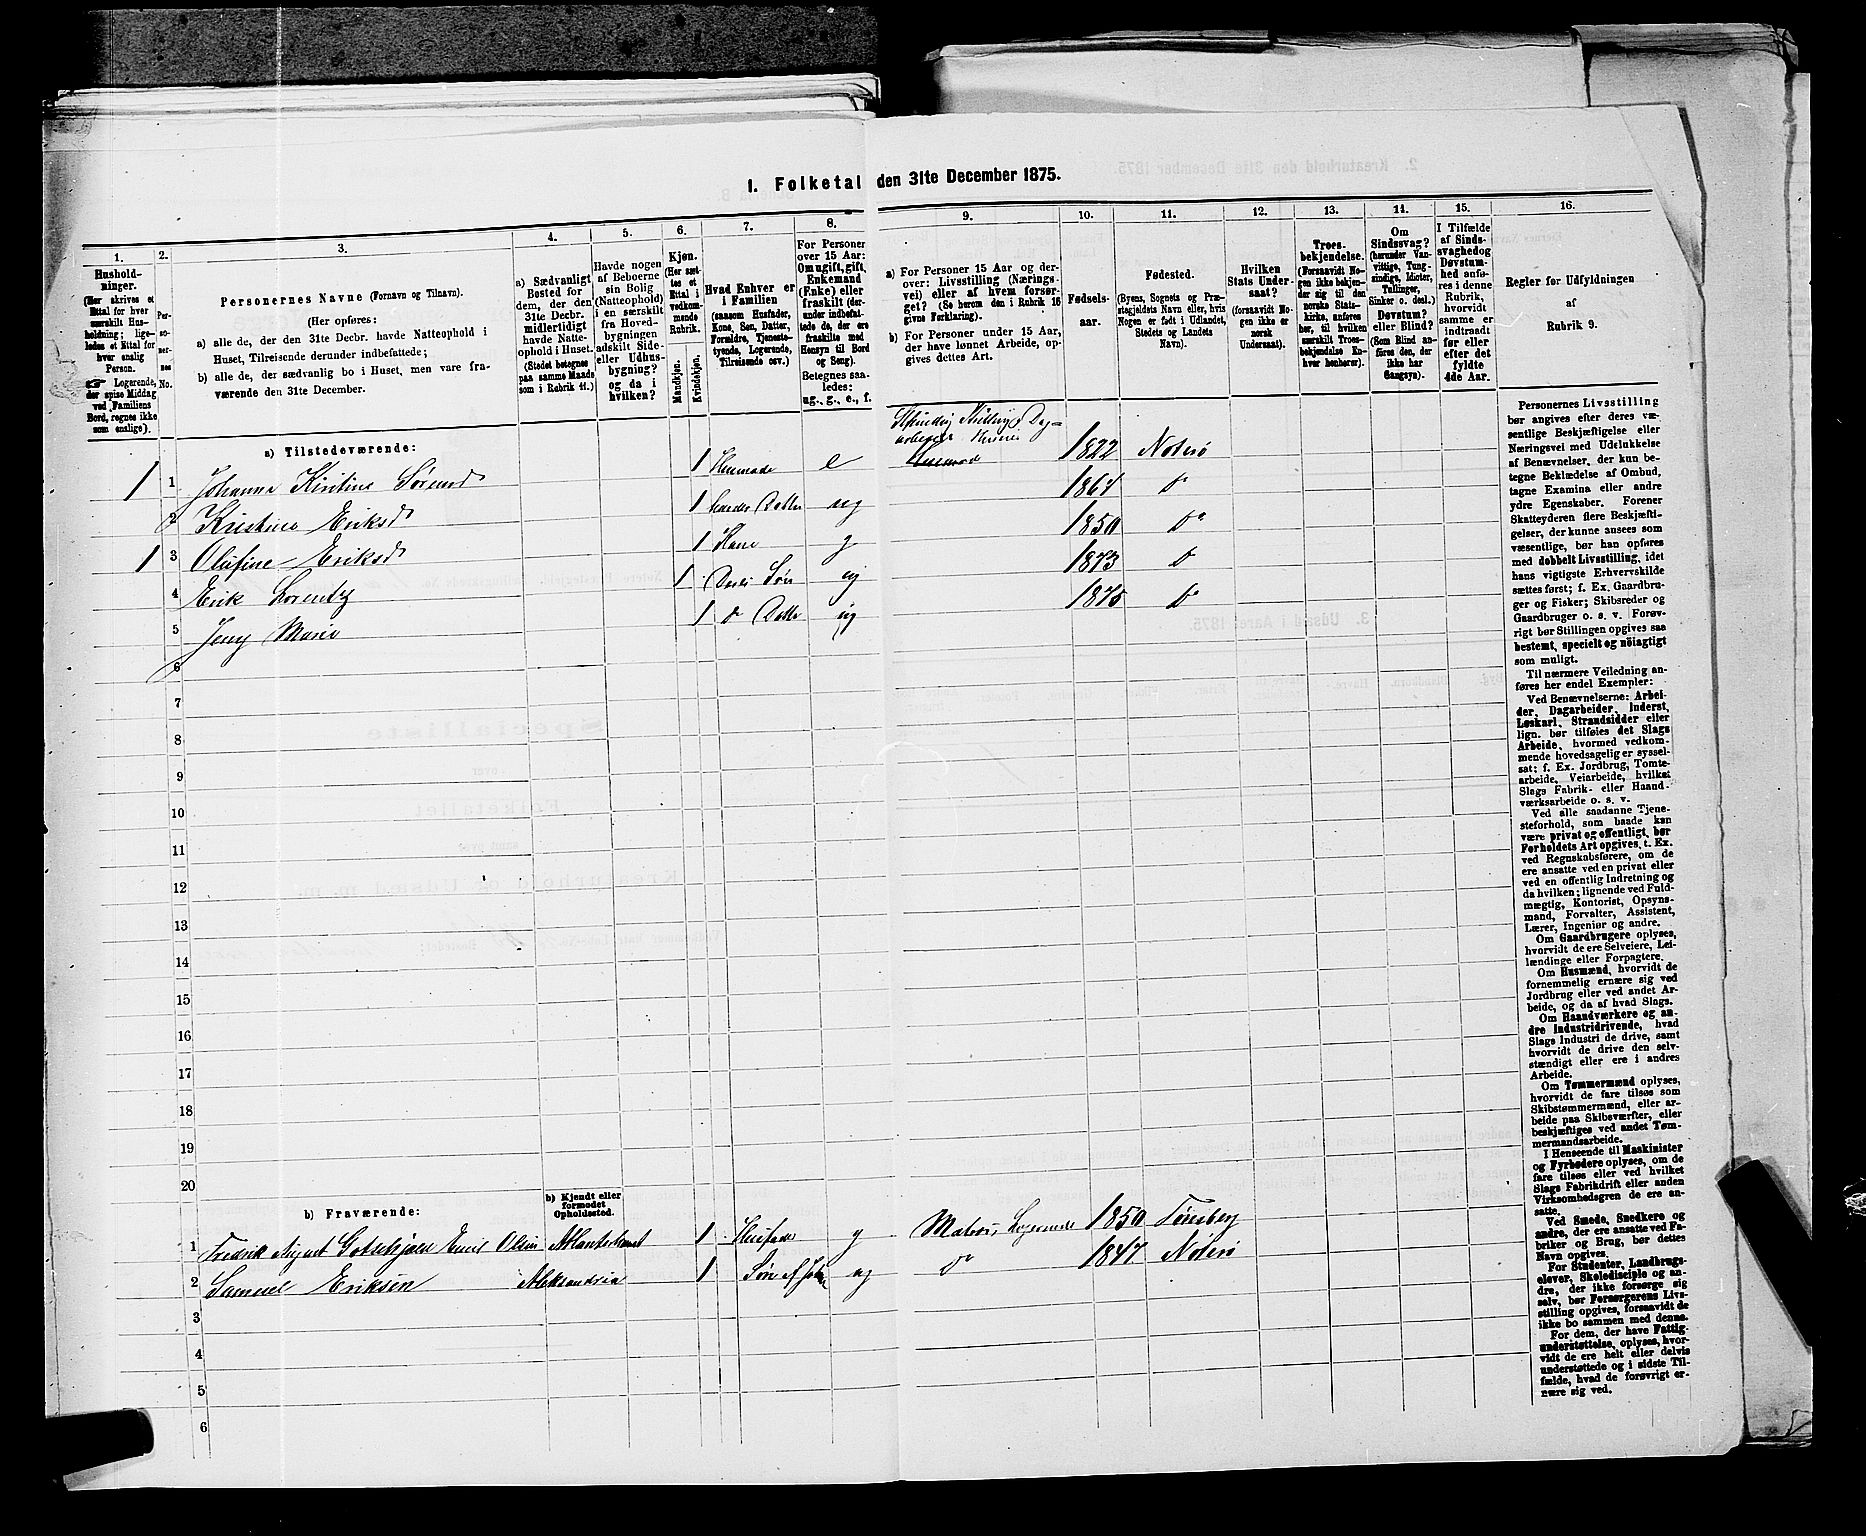 I. Folketal den 31te December 1875.
1.
2.
3.
4.
5.
6.
7.
8.
9.
10.
11.
12.
13.
14.
15.
16.
Hushold-
ninger.
(Her skrives et
Ettal for hver
særskilt Hus-
holdning; lige-
ledes et Ettal for
hver enslig
Person.
☞ Logerende,
der spise Middag
ved Familiens
Bord, regnes ikke
som enslige).
Per-
so-
ner-
nes
No.
Personernes Navne (Fornavn og Tilnavn).
(Her opføres:
a) alle de, der den 31te Decbr. havde Natteophold i
Huset, Tilreisende derunder indbefattede;
b) alle de, der sædvanlig bo i Huset, men vare fra-
værende den 31te December.
a) Sædvanligt
Bosted for
dem, der den
31te Decbr.
midlertidigt
havde Natte-
ophold i Huset.
(Stedet betegnes
paa samme Maade
som i Rubrik 11.)
Havde nogen
af Beboerne
sin Bolig
(Natteophold)
i en særskilt
fra Hoved-
bygningen
adskilt Side-
eller Udhus-
bygning?
og da i
hvilken?
Kjøn.
(Her sæt-
tes et
Ettal i
vedkom-
mende
Rubrik.
Mandkjøn.
Kvindekjøn.
Hvad Enhver er
i Familien
(saasom Husfader,
Kone, Søn, Datter,
Forældre, Tjeneste-
tyende, Logerende,
Tilreisende osv.)
For Personer
over 15 Aar:
Om ugift, gift,
Enkemand
(Enke) eller
fraskilt (der-
under indbefat-
tede de, der ere
fraskilte med
Hensyn til Bord
og Seng)
Betegnes saa-
ledes:
ug., g., e., f.
a) For Personer 15 Aar og der-
over: Livsstilling (Nærings-
vei) eller af hvem forsør-
get? (Se herom den i Rubrik 16
givne Forklaring).
b) For Personer under 15 Aar,
der have lønnet Arbeide, op-
gives dettes Art.
Fødsels-
aar.
Fødested.
(Byens, Sognets og Præ-
stegjeldets Navn eller, hvis
Nogen er født i Udlandet,
Stedets og Landets
Navn).
Hvilken
Stats Under-
saat?
(forsaavidt No-
gen ikke er
norsk
Undersaat).
Troes-
bekjendelse.
(Forsaavidt No-
gen ikke bekjen-
der sig til den
norske Stats-
kirke, anføres
her, til hvilken
særskilt Troes-
bekjendelse En-
hver henhører).
Om
Sindssvag?
(herunder Van-
vittige, Tung-
sindige, Idioter,
Tullinger,
Sinker o. desl.)
Døvstum?
eller Blind?
(Som Blind an-
føres den, der
ikke har
Gangsyn).
I Tilfælde
af Sinds-
svaghed og
Døvstum-
hed anfø-
res i denne
Rubrik,
hvorvidt
samme er
indtraadt
før eller
efter det
fyldte
4de Aar.
Regler for Udfyldningen
af
Rubrik 9.
a) Tilstedeværende:
1 1 Johanna Kirstine Sørensd 1 Husmoder e 1822 Nøterø
2 Kristine Eriksd 1 hendes Datter ug 1864 do
1 3 Olufine Eriksd 1 Kone g 1850 do
4 Erik Lorentz 1 Deres Søn ug 1873 do
5 Jeny Marie 1 do Datter ug 1875 do
6
7
8
9
10
11
12
13
14
15
16
17
18
19
20
b) Fraværende:
b) Kjendt eller
formodet
Opholdssted.
1 Fredrik August Emil Olsen Atlanterhavet 1 Husfader g Matros, Logerende 1850 Tønsberg
2 Samuel Eriksen Aleksandria 1 Søn af ug do 1847 Nøterø
3
4
5
6
Personernes Livsstilling
bør angives efter deres væ-
sentlige Beskjæftigelse eller
Næringsvei med Udelukkelse
af Benævnelser, der kun be-
tegne Beklædelse af Ombud,
tagne Examina eller andre
ydre Egenskaber. Forener
Skatteyderen flere Beskjæfti-
gelser, der kunne ansees som
væsentlige, bør han opføres
med dobbelt Livsstilling, idet
hans vigtigste Erhvervskilde
sættes først; f. Ex. Gaardbru-
ger og Fisker; Skibsreder og
Gaardbruger o. s. v. Forøv-
rigt bør Stillingen opgives saa
bestemt, specielt og nøiagtigt
som muligt.
Til nærmere Veiledning an-
føres her endel Exempler:
Ved Benævnelserne: Arbei-
der, Dagarbeider, Inderst,
Løskarl, Strandsidder eller
lign. bør tilføies det Slags
Arbeide, hvormed vedkom-
mende hovedsagelig er syssel-
sat; f. Ex. Jordbrug, Tomte-
arbeide, Veiarbeide, hvilket
Slags Fabrik- eller Haand-
værksarbeide o. s. v.
Ved alle saadanne Tjene-
steforhold, som baade kan
være privat og offentligt, bør
Forholdets Art opgives, t. Ex.
ved Regnskabsførere, om de
ere ansatte ved en privat eller
ved en offentlig Indretning og
da hvilken; lignende ved Fuld-
mægtig, Kontorist, Opsyns-
mand, Forvalter, Assistent,
Lærer, Ingeniør og andre.
Om Gaardbrugere oplyses,
hvorvidt de ere Selveiere, Lei-
lændinge eller Forpagtere.
Om Husmænd, hvorvidt de
fornemmelig ernære sig ved
Jordbrug eller ved andet Ar-
beide, og da af hvad Slags.
Om Haandværkere og an-
dre Industridrivende, hvad
Slags Industri de drive, samt
hvorvidt de drive den selv-
stændigt eller ere i andres
Arbeide.
Om Tømmermænd oplyses,
hvorvidt de fare tilsøs som
Skibstømmermænd, eller ar-
beide paa Skibsværfter, eller
beskjæftiges ved andet Tøm-
mermandsarbeide.
I Henseende til Maskinister
og Fyrbødere oplyses, om de
fare tilsøs eller ved hvilket
Slags Fabrikdrift eller anden
Virksomhedsgren de ere an-
satte.
Ved Smede, Snedkere og
andre, der ere ansatte ved Fa-
briker og Brug, bør dettes
Navn opgives.
For Studenter, Landbrugs-
elever, Skoledisciple og an-
dre, der ikke forsørge sig
selv, bør Forsørgerens Livs-
stilling opgives, forsaavidt de
ikke bo sammen med denne.
For dem, der have Fattig-
understøttelse, oplyses, hvor-
vidt de ere helt eller delvis
understøttede og i sidste Til-
fælde, hvad de forøvrigt er-
nære sig ved.